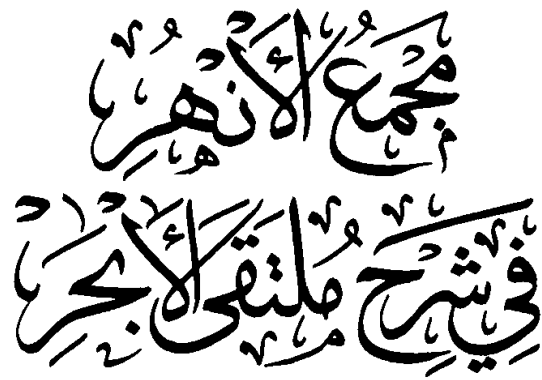 مَجْمَعُ الأَنْهُرِ
فِي شَرْحِ مُلْتَقَى الأَبْحُرِ